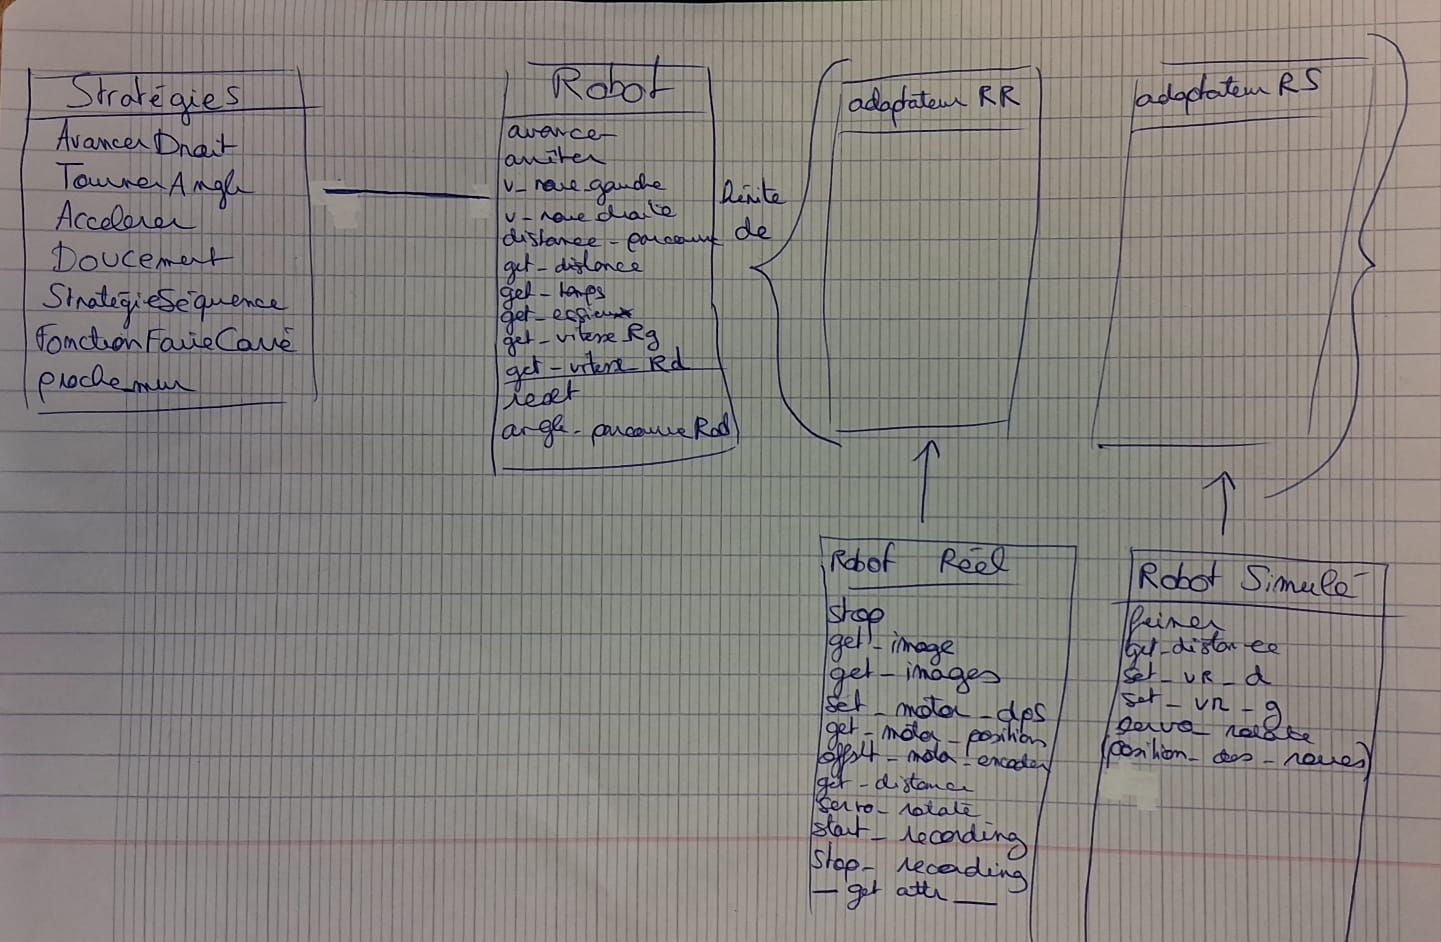 Stratégies
AvancerDroit
TournerAngle
Accelerer
Doucement
StratégieSéquence
fonctionFaireCarré
proche_mur
Robot
avancer
arrêter
v_roue_gauche
v_roue_droite
distance_parcourue
get_distance
get_temps
get_essieux
get_vitesse Rg
get_vitesse_Rd
reset
angle_parcourueRad
hérite
de
adaptateur RR
adaptateur RS
Robot Réel
stop
get_image
get_images
set_motor_dps
get_motor_position
offset_motor_encoder
get_distance
servo_rotate
start_recording
stop_recording
__get attr__
Robot Simulé
freiner
get_distance
set_VR_d
set_VR_g
servo_rotate
(position_des_roues)